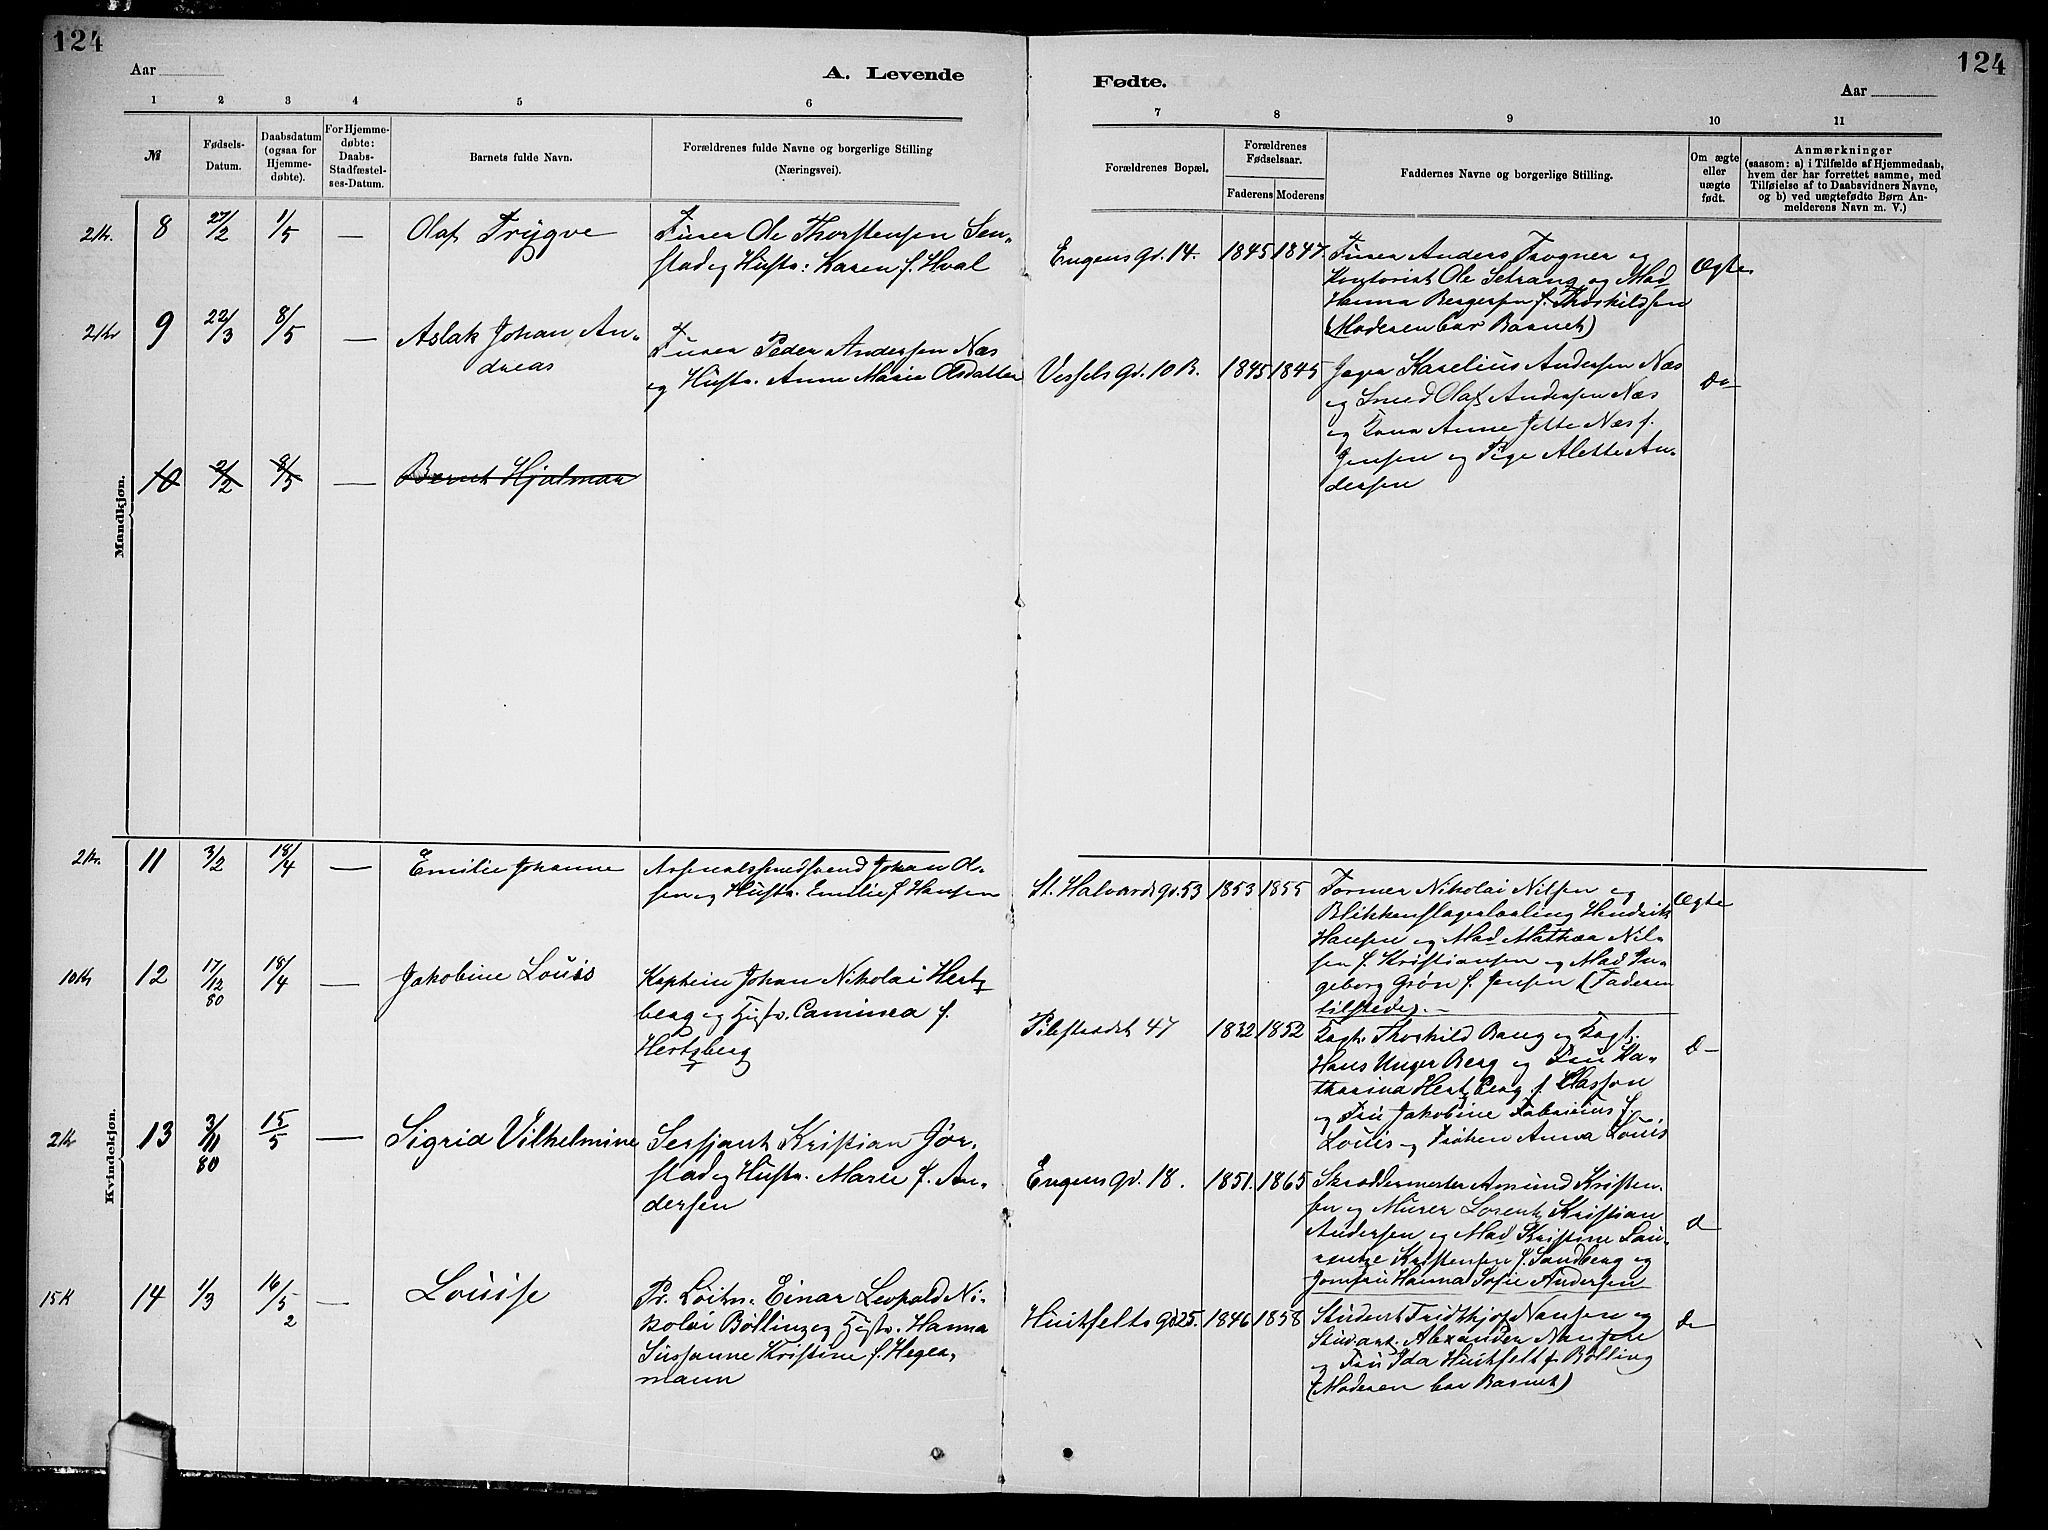 124
124
Aar
A. Levende
Fødte.
Aar
1 2 3 4 5 6 7 8 9 10 11
№
Fødsels-
Datum.
Daabsdatum
(ogsaa for
Hjemme-
døbte).
For Hjemme-
døbte:
Daabs-
Stadfæstel-
ses-Datum.
Barnets fulde Navn.
Forældrenes fulde Navne og borgerlige Stilling
(Næringsvei).
Forældrenes Bopæl.
Forældrenes
Fødselsaar.
Faderens Moderens
Faddernes Navne og borgerlige Stilling.
Om ægte
eller
uægte
født.
Anmærkninger
(saasom: a) i Tilfælde af Hjemmedaab,
hvem der har forrettet samme, med
Tilføielse af to Daabsvidners Navne,
og b) ved uægtefødte Børn An-
melderens Navn m. V.)
Mandkjøn.
2 Kr. 8 27/2 1/5 — Olaf Trygve
Furer Ole Thorstensen Sen-
stad og Hustr: Karen f. Hval
Engens gd. 14. 1845 1847.
Furer Anders Trogner og
Kontorist Ole Setrang og Mad
Hanna Bergersen f. Thorkildsen
(Moderen bar Barnet)
Ægte
2 Kr 9 22/3 8/5 — Aslak Johan An-
dreas
Furer Peder Andersen Næs
og Hustr. Anne Marie Olsdatter
Vessels gd. 10 B. 1845 1845
Jæger Karelius Andersen Næs
og Smed Olaf Andersen Næs
og Kona Anne Jette Næs f.
Jensen og Pige Alette An-
dersen
do
10 2/2 8/5 — Bernt Hjalmar
Kvindekjøn.
2 Kr. 11 3/2 18/4 — Emilie Johanne
Arsenalssmedsvend Johan Ol-
sen og Hustr. Emilie f. Hansen
St. Halvards gd. 53 1853 1855
Former Nikolai Nilsen og
Blikkenslagerlærling Hendrik
Hansen og Mad Mathea Nil-
sen f. Kristiansen og Mad In-
geborg Grøn f. Jensen (Faderen
tilstede). —
Ægte
10 Kr 12 17/12 80 18/4 — Jakobine Louis
Kaptein Johan Nikolai Hertz
berg og Hustr. Camimea f.
Hertzberg
Pilestrædet 47 1832 1852
Kapt. Thorkild Bang og Kapt.
Hans Unger Berg og Fru Ka-
tharina Hertzberg f. Classon
og Fru Jakobine Fabricius f.
Louis og Frøken Anna Louis
d—
2 Kr 13 3/11 80 15/5 — Sigrid Vilhelmine
Sersjant Kristian Jør-
stad og Hustr. Marie f. An-
dersen
Engens gd. 18. 1851. 1865
Skræddermester Amund Kristen-
sen og Murer Lorentz Kristian
Andersen og Mad Kristine Lau-
rentze Kristensen f. Sandberg og
Jomfru Hanna Sofie Andersen
d
15 K 14 1/3 16/5 2 — Louise
Pr. Löitn. Einar Leopold Ni-
kolai Bølling og Hustr. Hanna
Sussanne Kristine f. Heger-
mann
Huitfelts gd 25. 1846 1858
Student Fridthjof Nansen og
Student Alexander Nansen
og Fru Ida Huitfelt f. Bølling
(Moderen bar Barnet)
do